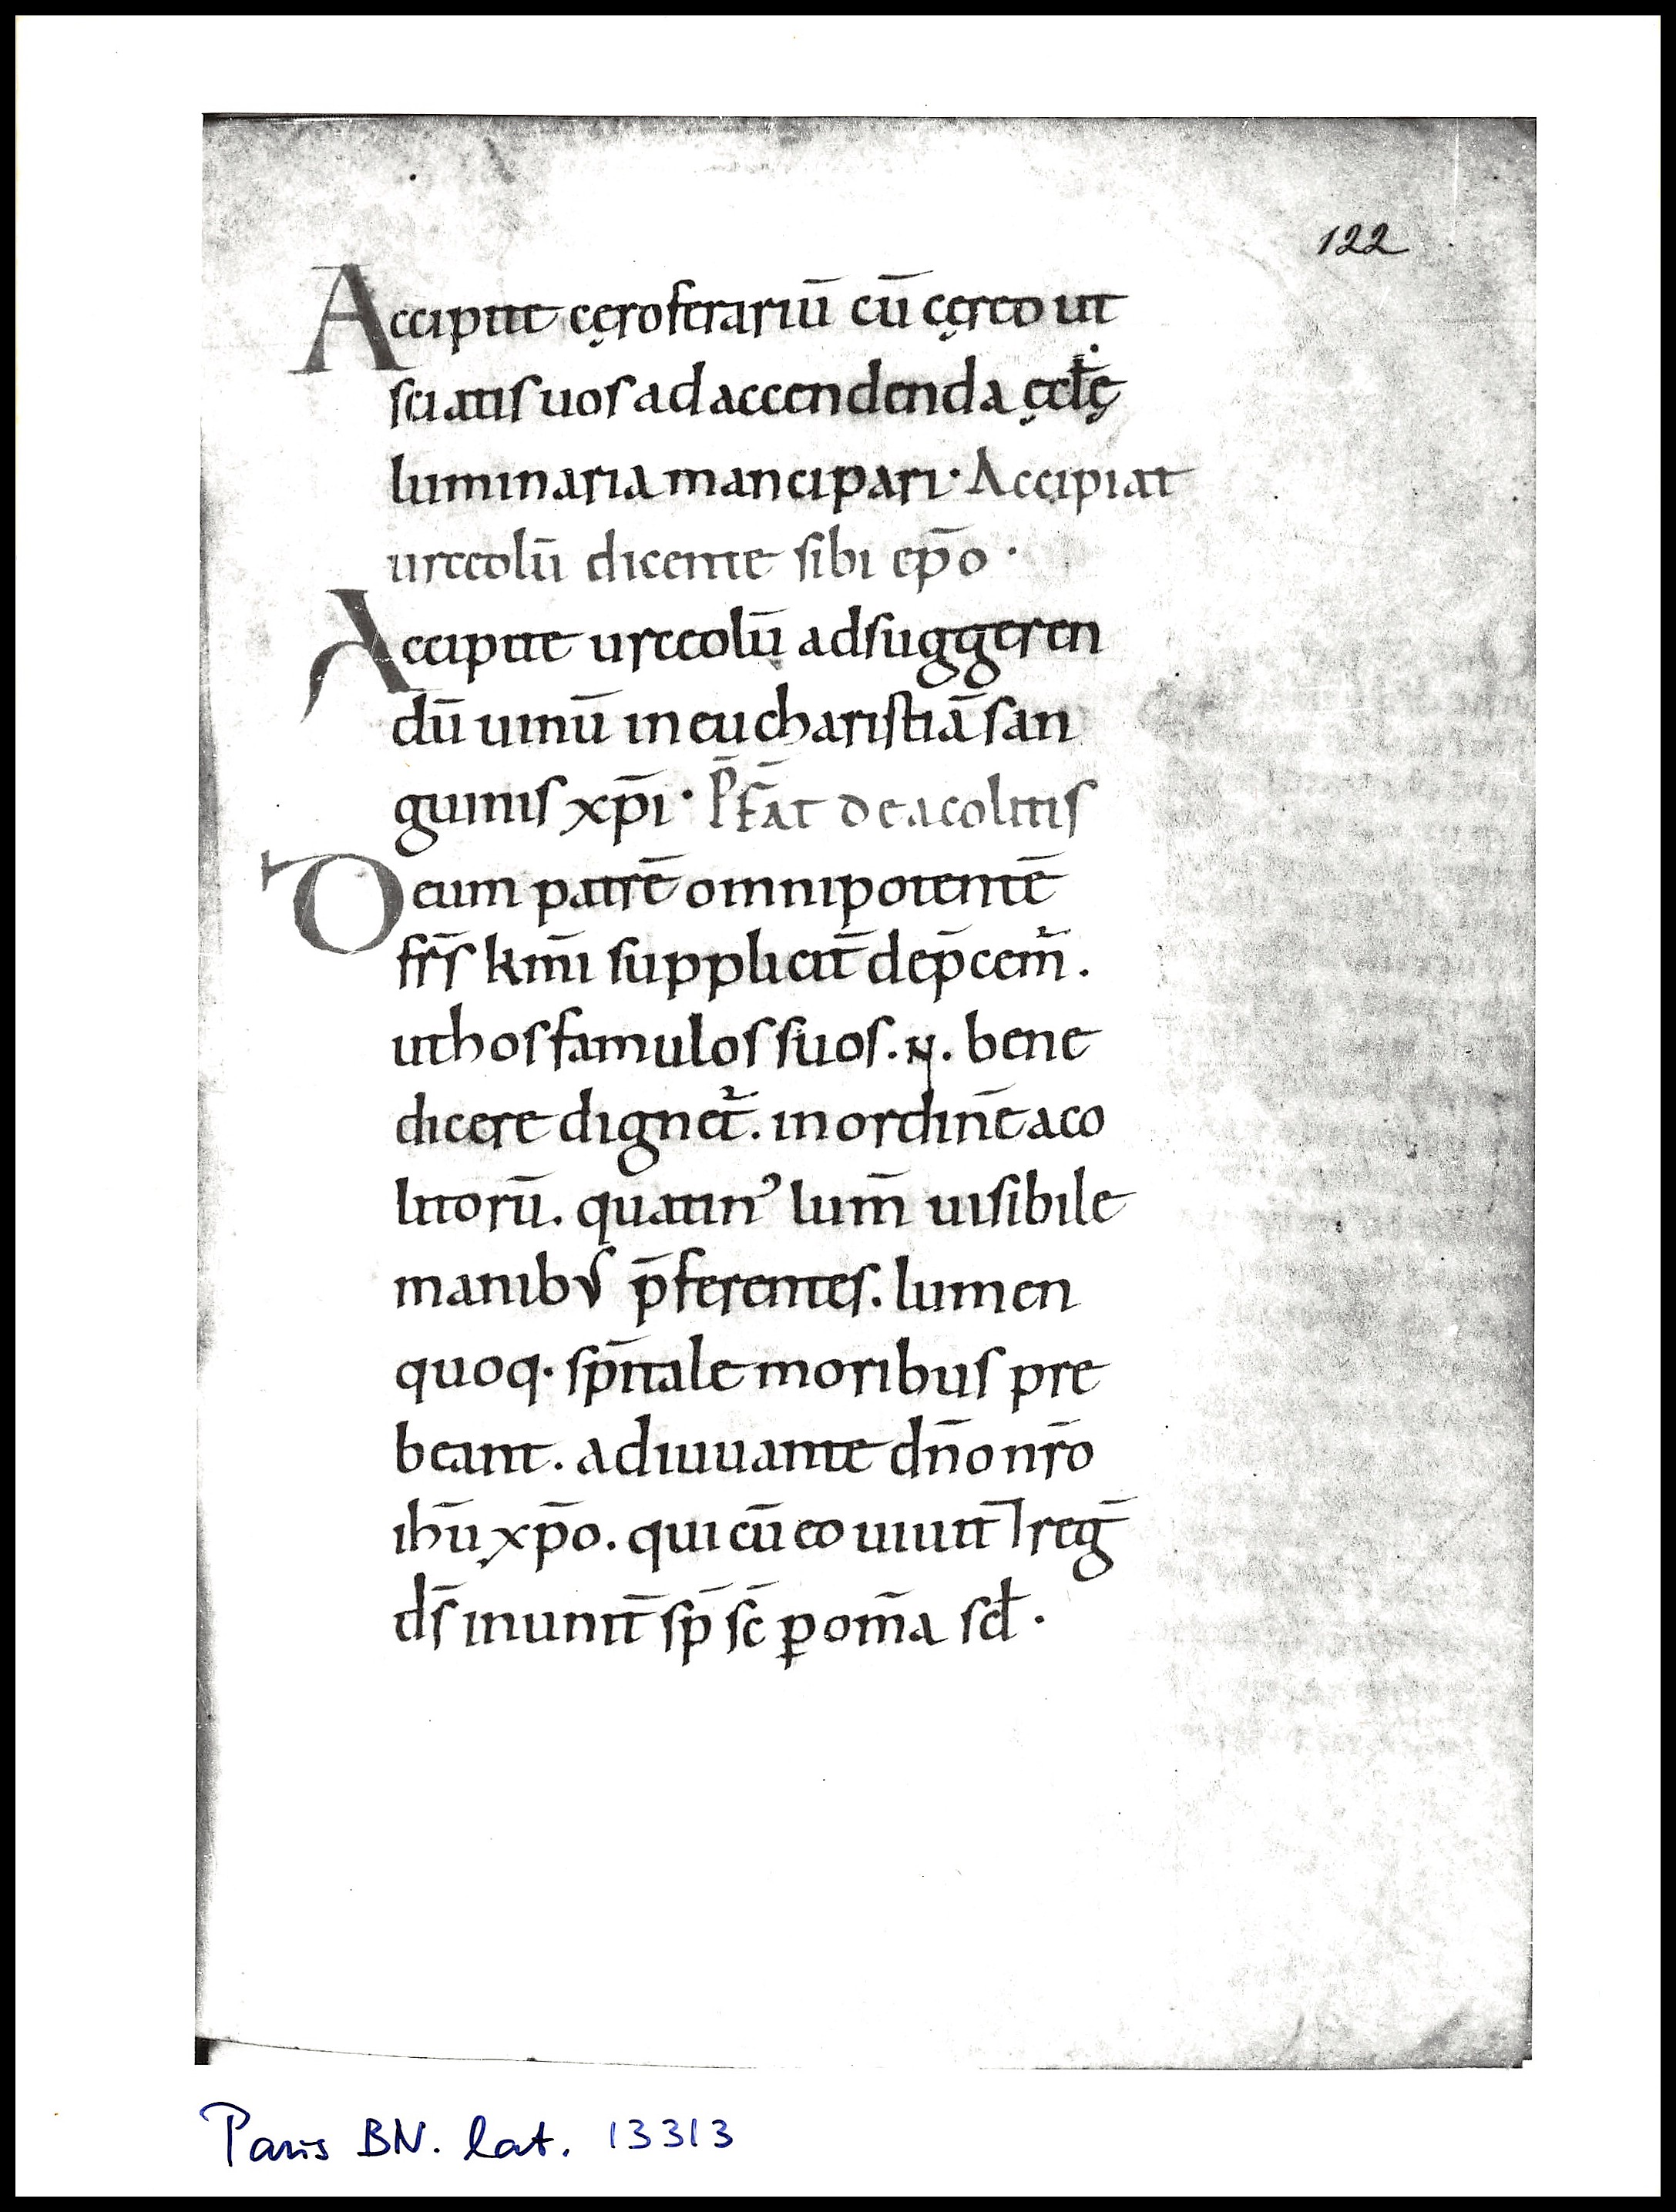 122
Accipite cęroferariū cū cęreo ut
sciatis uos ad accendenda ęcłę
luminaria mancipari· Accipiat
urceolū dicente sibi ep̄o ·
Accipite urceolū ad suggeren
dū uinū in eucharistiā san
guinis xp̄i· P̄fāt de acolitis
Deum patrē omnipotentē
fr̄s km̄i supplicit̄ dep̄cem̄.
ut hos famulos suos. N. bene
dicere dignet̄. in ordin̄e aco
litorū. quatin᾿ lum̄ uisibile
manibus p̄ferentes. lumen
quoq· sp̄itale moribus pre
beant. adiuuante dn̄o nr̄o
ihū xp̄o. qui cū eo uiuit̄ ⁊ reḡ
ds̄ in unit̄ sp̄ sc̄ ꝑ om̄a scł·
Paris BN. lat. 13313